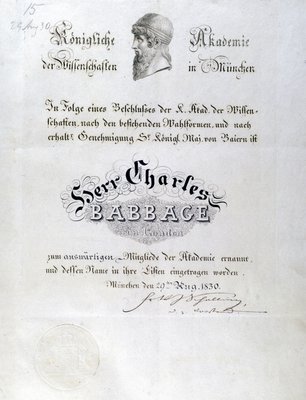 15
Königliche Akademie
der Wissenschaften in München
In Folge eines Beschlußes der K. Akad. der Wissen-
schaften, nach den bestehenden Wahlformen, und nach
erhalt. Genehmigung Sr. Königl. Maj. von Baiern ist
Herr Charles
BABBAGE
in London
zum auswärtigen Mitgliede der Akademie ernannt,
und dessen Name in ihre Listen eingetragen worden.
München den 29ten Aug. 1830.